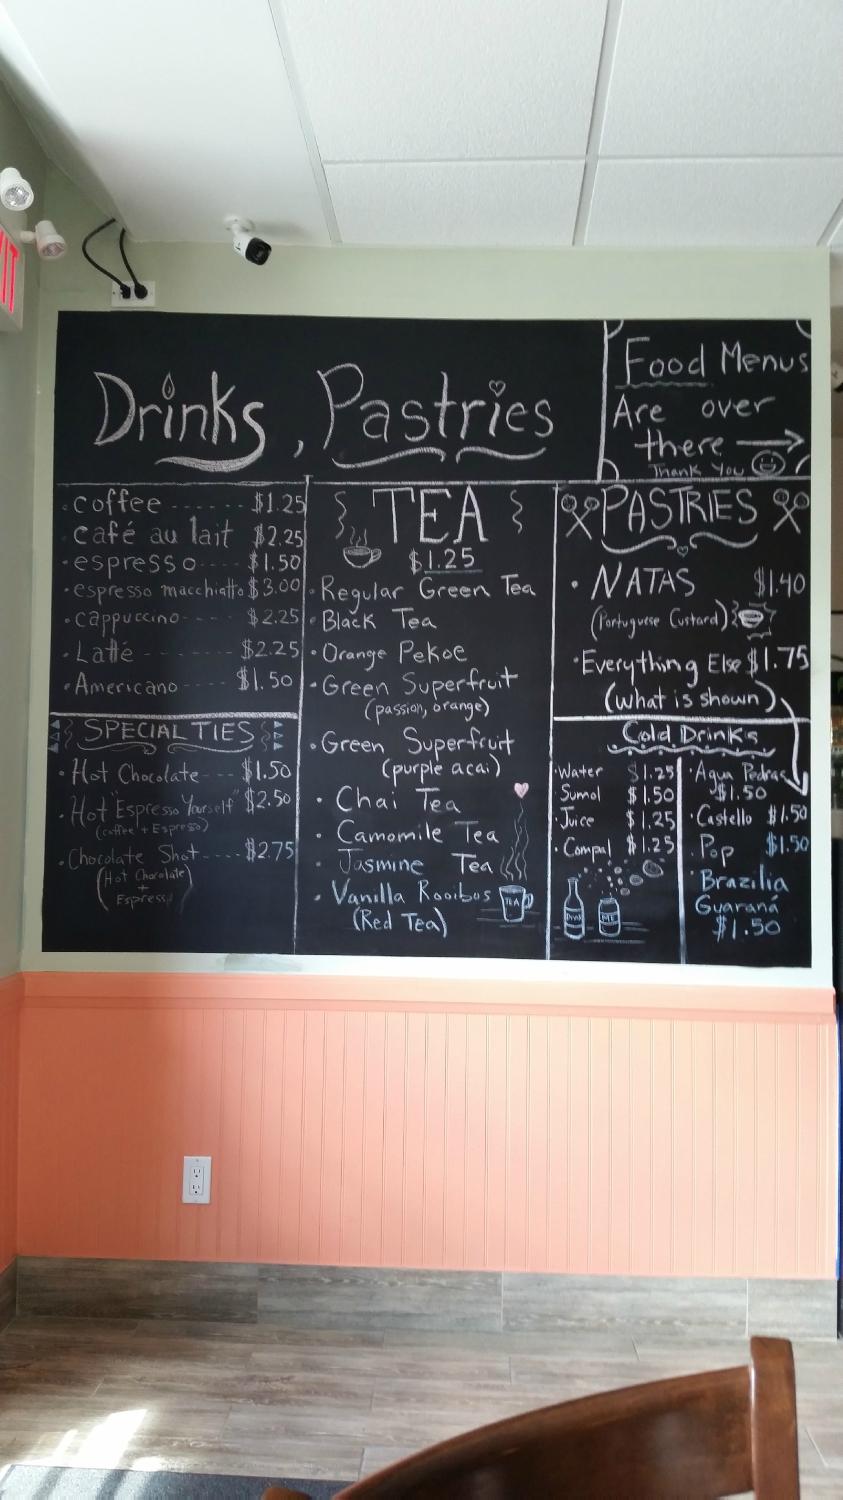 IT
Drinks, Pastries
Food Menus
Are over
there →
Thank You
coffee ------- $1.25
café au lait $2.25
espresso ---- $1.50
espresso macchiatto $3.00
cappuccino ----- $2.25
Latté --------- $2.25
Americano ---- $1.50
SPECIALTIES
Hot Chocolate --- $1.50
Hot "Espresso Yourself" $2.50
(coffee + Espresso)
Chocolate Shot ---- $2.75
(Hot Chocolate
+
Espresso)
TEA
$1.25
Regular Green Tea
Black Tea
Orange Pekoe
Green Superfruit
(passion, orange)
Green Superfruit
(purple acai)
Chai Tea
Camomile Tea
Jasmine Tea
Vanilla Rooibos
(Red Tea)
TEA
PASTRIES
NATAS $1.40
(Portuguese Custard)
Everything Else $1.75
(what is shown)
Cold Drinks
Water $1.25
Sumol $1.50
Juice $1.25
Compal $1.25
DRINK
ME
Agua Pedras
$1.50
Castello $1.50
Pop $1.50
Brazilia
Guaraná
$1.50